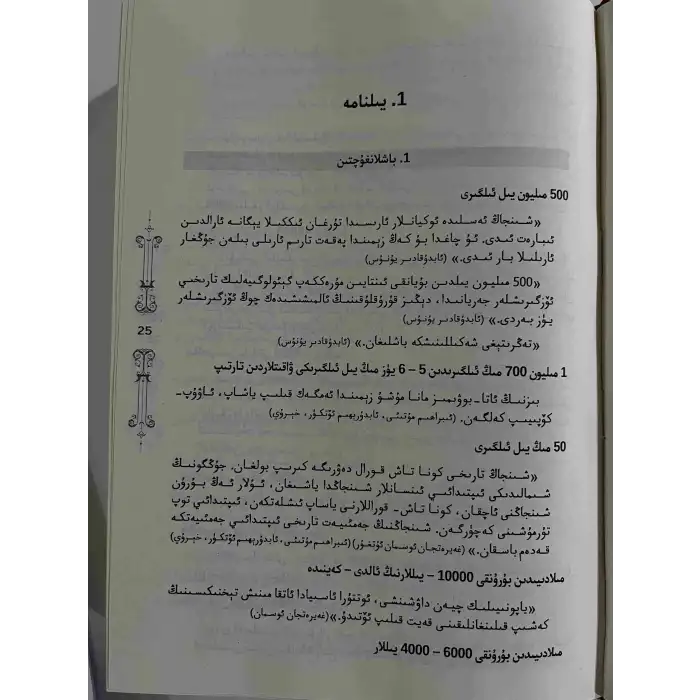 1. يىلنامە
1. باشلانغۇچتىن
500 مىليون يىل ئىلگىرى
«شىنجاڭ ئەسلىدە ئوكيانلار ئارىسىدا تۇرغان ئىككىلا يېگانە ئارالدىن
ئىبارەت ئىدى. ئۇ چاغدا بۇ كەڭ زېمىندا پەقەت تارىم ئارىلى بىلەن جۇڭغار
ئارىلىلا بار ئىدى.» (ئابدۇقادىر يۇنۇس)
«500 مىليون يىلدىن بۇيانقى ئىنتايىن مۇرەككەپ گېئولوگىيەلىك تارىخىي
ئۆزگىرىشلەر جەريانىدا، دېڭىز قۇرۇقلۇقنىڭ ئالمىشىشىدەك چوڭ ئۆزگىرىشلەر
يۈز بەردى.» (ئابدۇقادىر يۇنۇس)
«تەڭرىتېغى شەكىللىنىشكە باشلىغان.» (ئابدۇقادىر يۇنۇس)
1 مىليون 700 مىڭ ئىلگىرىدىن 5 – 6 يۈز مىڭ يىل ئىلگىرىكى ۋاقىتلاردىن تارتىپ
بىزنىڭ ئاتا-بوۋىمىز مانا مۇشۇ زېمىندا ئەمگەك قىلىپ ياشاپ، ئاۋۇپ-
كۆپىيىپ كەلگەن. (ئىبراھىم مۇتىئى، ئابدۇرېھىم ئۆتكۈر، خېرۇي)
50 مىڭ يىل ئىلگىرى
«شىنجاڭ تارىخى كونا تاش قورال دەۋرىگە كىرىپ بولغان. جۇڭگونىڭ
شىمالىدىكى ئىپتىدائىي ئىنسانلار شىنجاڭدا ياشىغان، ئۇلار ئەڭ بۇرۇن
شىنجاڭنى ئاچقان، كونا تاش- قوراللارنى ياساپ ئىشلەتكەن، ئىپتىدائىي توپ
تۇرمۇشىنى كەچۈرگەن. شىنجاڭنىڭ جەمئىيەت تارىخى ئىپتىدائىي جەمئىيەتكە
قەدەم باسقان.» (غەيرەتجان ئوسمان ئۇتغۇر) (ئىبراھىم مۇتىئى، ئابدۇرېھىم ئۆتكۈر، خېرۇي)
مىلادىيىدىن بۇرۇنقى 10000 – يىللارنىڭ ئالدى – كەينىدە
«ياپونىيىلىك چيەن داۋشىنشى، ئوتتۇرا ئاسىيادا ئاتقا مىنىش تېخنىكىسىنىڭ
كەشىپ قىلىنغانلىقىنى قەيت قىلىپ ئۆتىدۇ.» (غەيرەتجان ئوسمان)
مىلادىيىدىن بۇرۇنقى 6000 – 4000 يىللار
25